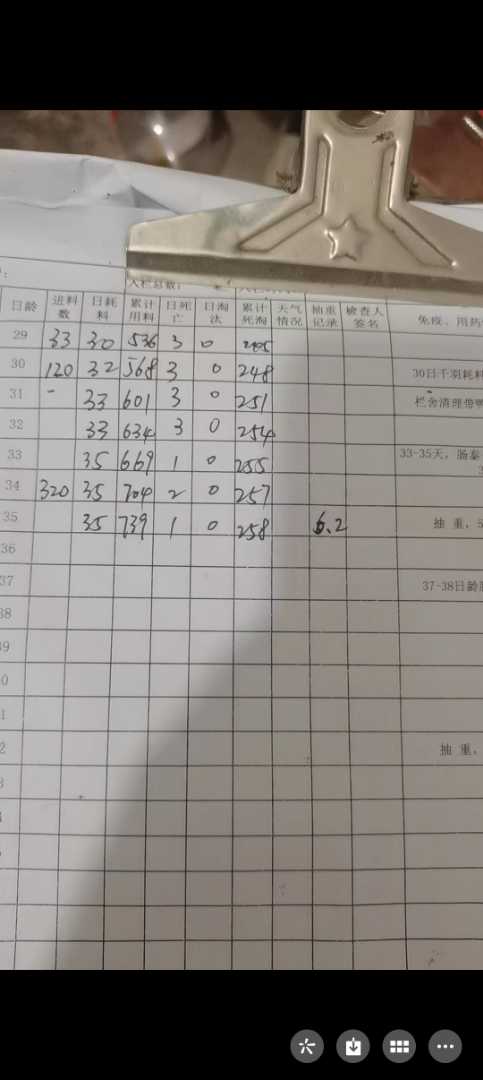 入栏总数:
日龄 进料数 日耗料 累计用料 日死亡 日淘汰 累计死淘 天气情况 抽重记录 检查人签名 免疫、用药
29 33 30 536 3 0 245
30 120 32 568 3 0 248 30日千羽耗料
31 - 33 601 3 0 251 栏舍清理带
32 33 634 3 0 254
33 35 669 1 0 255 33-35天,肠泰
34 320 35 704 2 0 257
35 35 739 1 0 258 6.2 抽重,
36
37 37-38日龄
38
39
0
1
2 抽重,
3